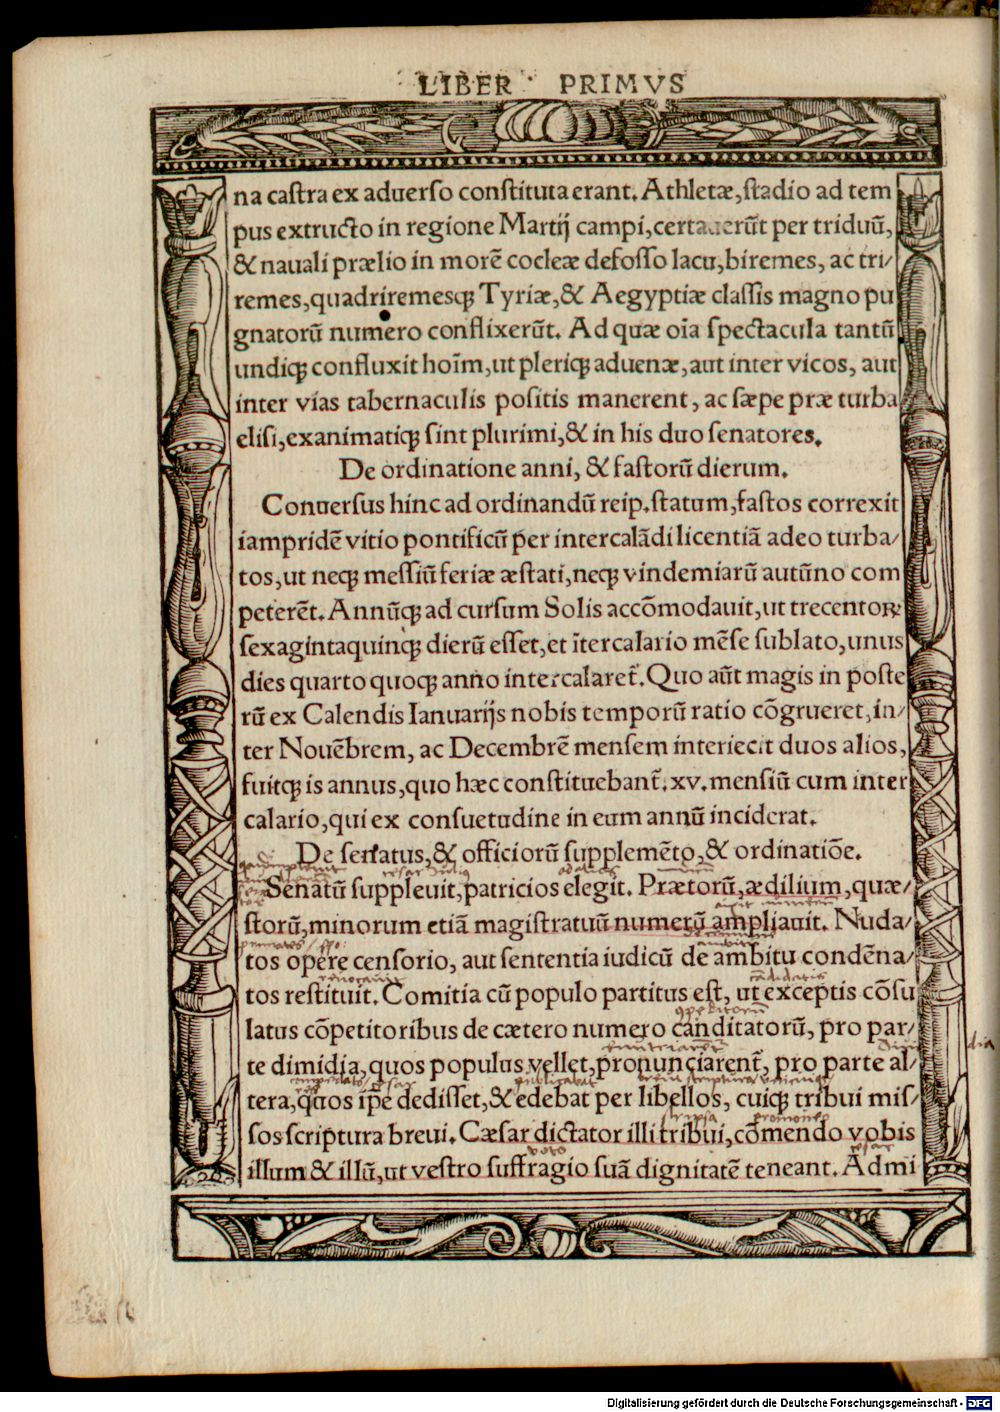 LIBER PRIMVS
na castra ex aduerso constituta erant. Athletæ, stadio ad tem
pus extructo in regione Martij campi, certauerūt per triduū,
& nauali prælio in morē cocleæ defosso lacu, biremes, ac tri/
remes, quadriremesq; Tyriæ, & Aegyptiæ classis magno pu
gnatorū numero conflixerūt. Ad quæ oīa spectacula tantū
undiq; confluxit hoīm, ut pleriq; aduenæ, aut inter vicos, aut
inter vías tabernaculis positis manerent, ac sæpe præ turba
elisi, exanimatiq; sint plurimi, & in his duo senatores.
De ordinatione anni, & fastorū dierum.
Conuersus hinc ad ordinandū reip. statum, fastos correxit
iampridē vitio pontificū per intercalādi licentiā adeo turba/
tos, ut neq; messiū feriæ æstati, neq; vindemiarū autūno com
peterēt. Annūq; ad cursum Solis accōmodauit, ut trecentoꝝ
sexagintaquinq; dierū esset, et ītercalario mēse sublato, unus
dies quarto quoq; anno intercalaret̄. Quo aūt magis in poste
rū ex Calendis Ianuarijs nobis temporū ratio cōgrueret, in/
ter Nouēbrem, ac Decembrē mensem interiecit duos alios,
fuitq; is annus, quo hæc constituebant̄. xv. mensiū cum inter
calario, qui ex consuetudine in eum annū inciderat.
De senatus, & officiorū supplemēto, & ordinatiōe.
Senatū suppleuit, patricios elegit. Prætorū, ædilium, quæ/
storū, minorum etiā magistratuū numerū ampliauit. Nuda/
tos opere censorio, aut sententia iudicū de ambitu condēna/
tos restituit. Comitia cū populo partitus est, ut exceptis cōsu
latus cōpetitoribus de cætero numero canditatorū, pro par/
te dimidia, quos populus vellet, pronunciarent̄, pro parte al/
tera, quos ip̄e dedisset, & edebat per libellos, cuiq; tribui mis/
sos scriptura breui. Cæsar dictator illi tribui, cōmendo vobis
illum & illū, ut vestro suffragio suā dignitatē teneant. Admi
Digitalisierung gefördert durch die Deutsche Forschungsgemeinschaft - DFG